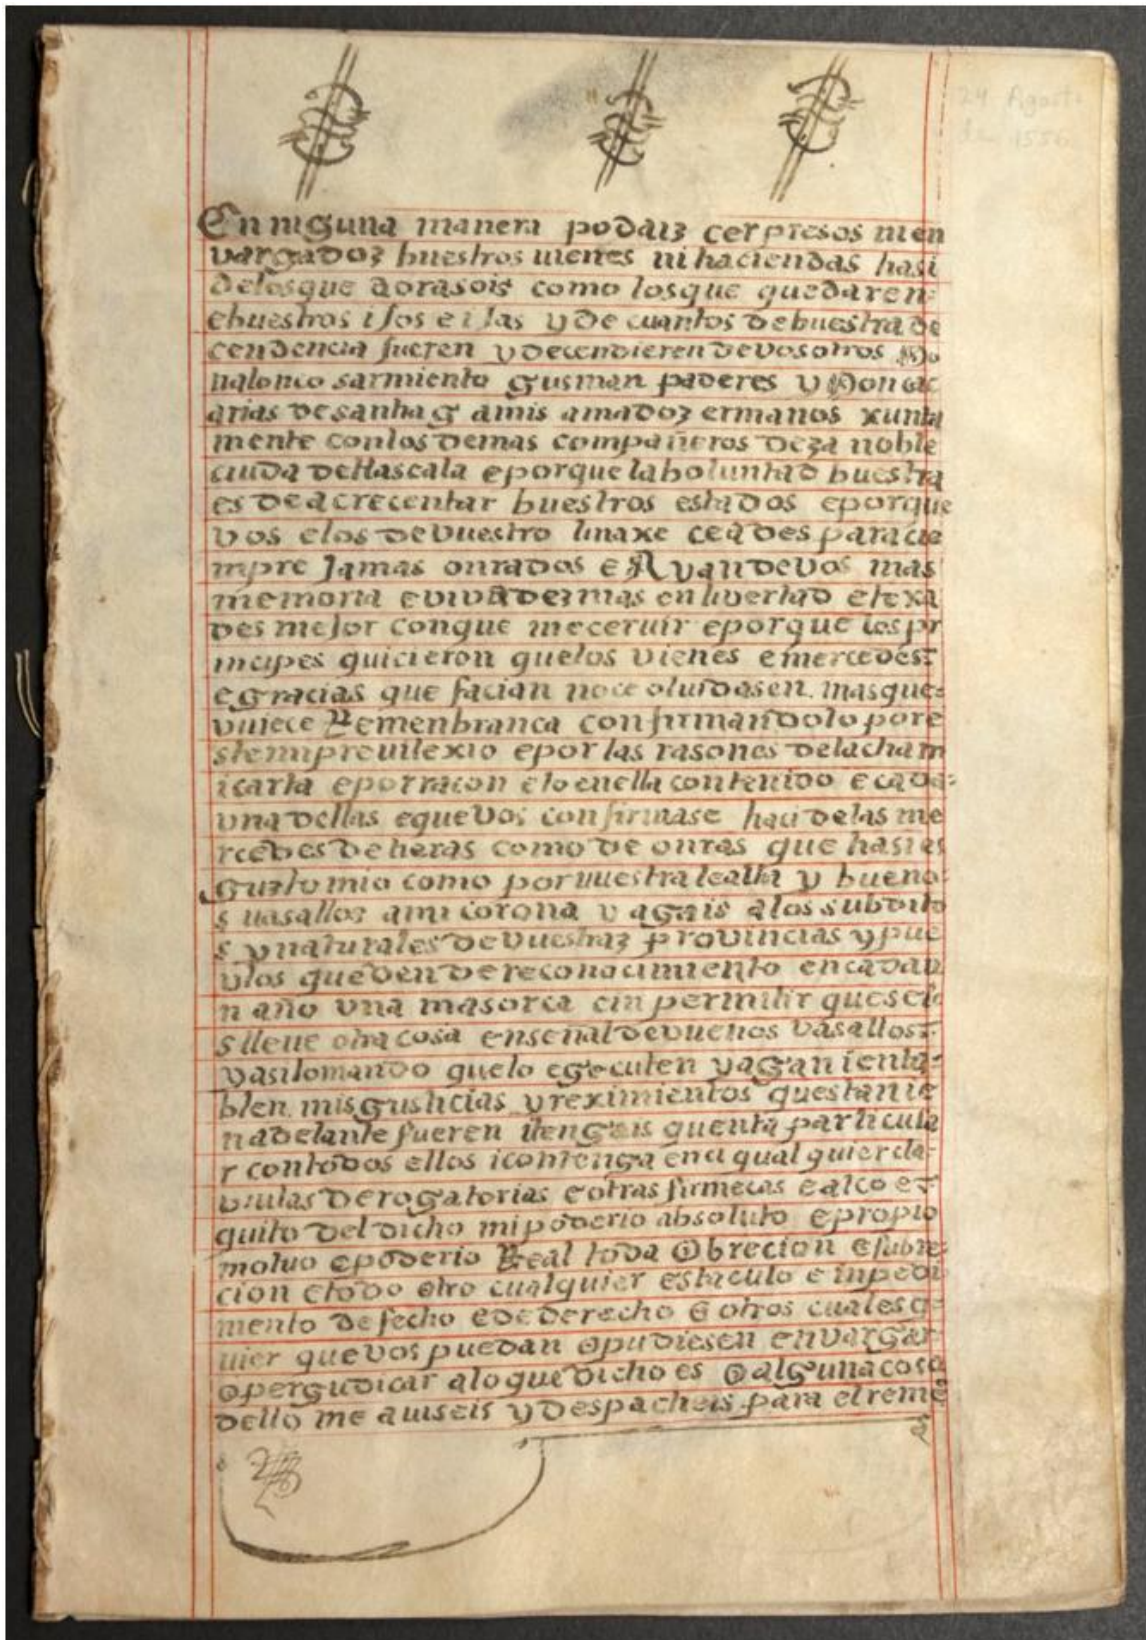 24 Agosto
de 1556
En niguna manera podaiz cer presos ni en
vargadoz buestros uienes ni haciendas hasi
delos que aorasois como los que quedaren
ebuestros isos e isas y de cuantos de buestra de
cendencia fueren y decendieren de vosotros Do
nalonco sarmiento gusman paderes y Don ac
arias de sanhag amis amadoz ermanos xunta
mente con los demas compañeros deza noble
ciuda detlascala e porque la boluntad buestra
es de acrecentar buestros estados e porque
vos e los de vuestro linaxe ceades para cie
mpre Jamas onrados e Ryan de vos mas
memoria e vivadez mas en livertad e texa
des mejor con que me ceruir e porque los pr
incipes quicieron que los vienes e mercedes
e gracias que facian no ce oluidasen. mas que
vuiece Remenbranca confirmandolo por e
stem preuilexio e por las rasones de la cha m
i carta e por racon e lo en ella contenido e cada
una dellas e que vos confirmase haci de las me
rcedes de tieras como de onras que hasi es
guzto mio como por vuestra lealta y bueno
s uasalloz ami corona y agais a los subdito
s y naturales de vuestraz provincias y pue
vlos que den de reconocimiento en cada u
n año una masorca cin permitir que se l
s lleue otra cosa en señal de vuenos vasallos
y asi lo mando que lo egecuten y agan ienta
blen. mis gusticias y reximientos questan ie
n adelante fueren i tengais quenta particula
r con todos ellos i contenga en ci qual quier cla
vsulas derogatorias e otras firmecas e alco e
quito del dicho mi poderio absoluto e propio
motuo e poderio Real toda obrecion e subre
cion e todo otro cualquier estaculo e inpedi
mento de fecho e de derecho e otros cuales q
uier que vos puedan o pudiesen envargar
o pergudicar a lo que dicho es o alguna cosa
dello me auiseis y despacheis para el reme